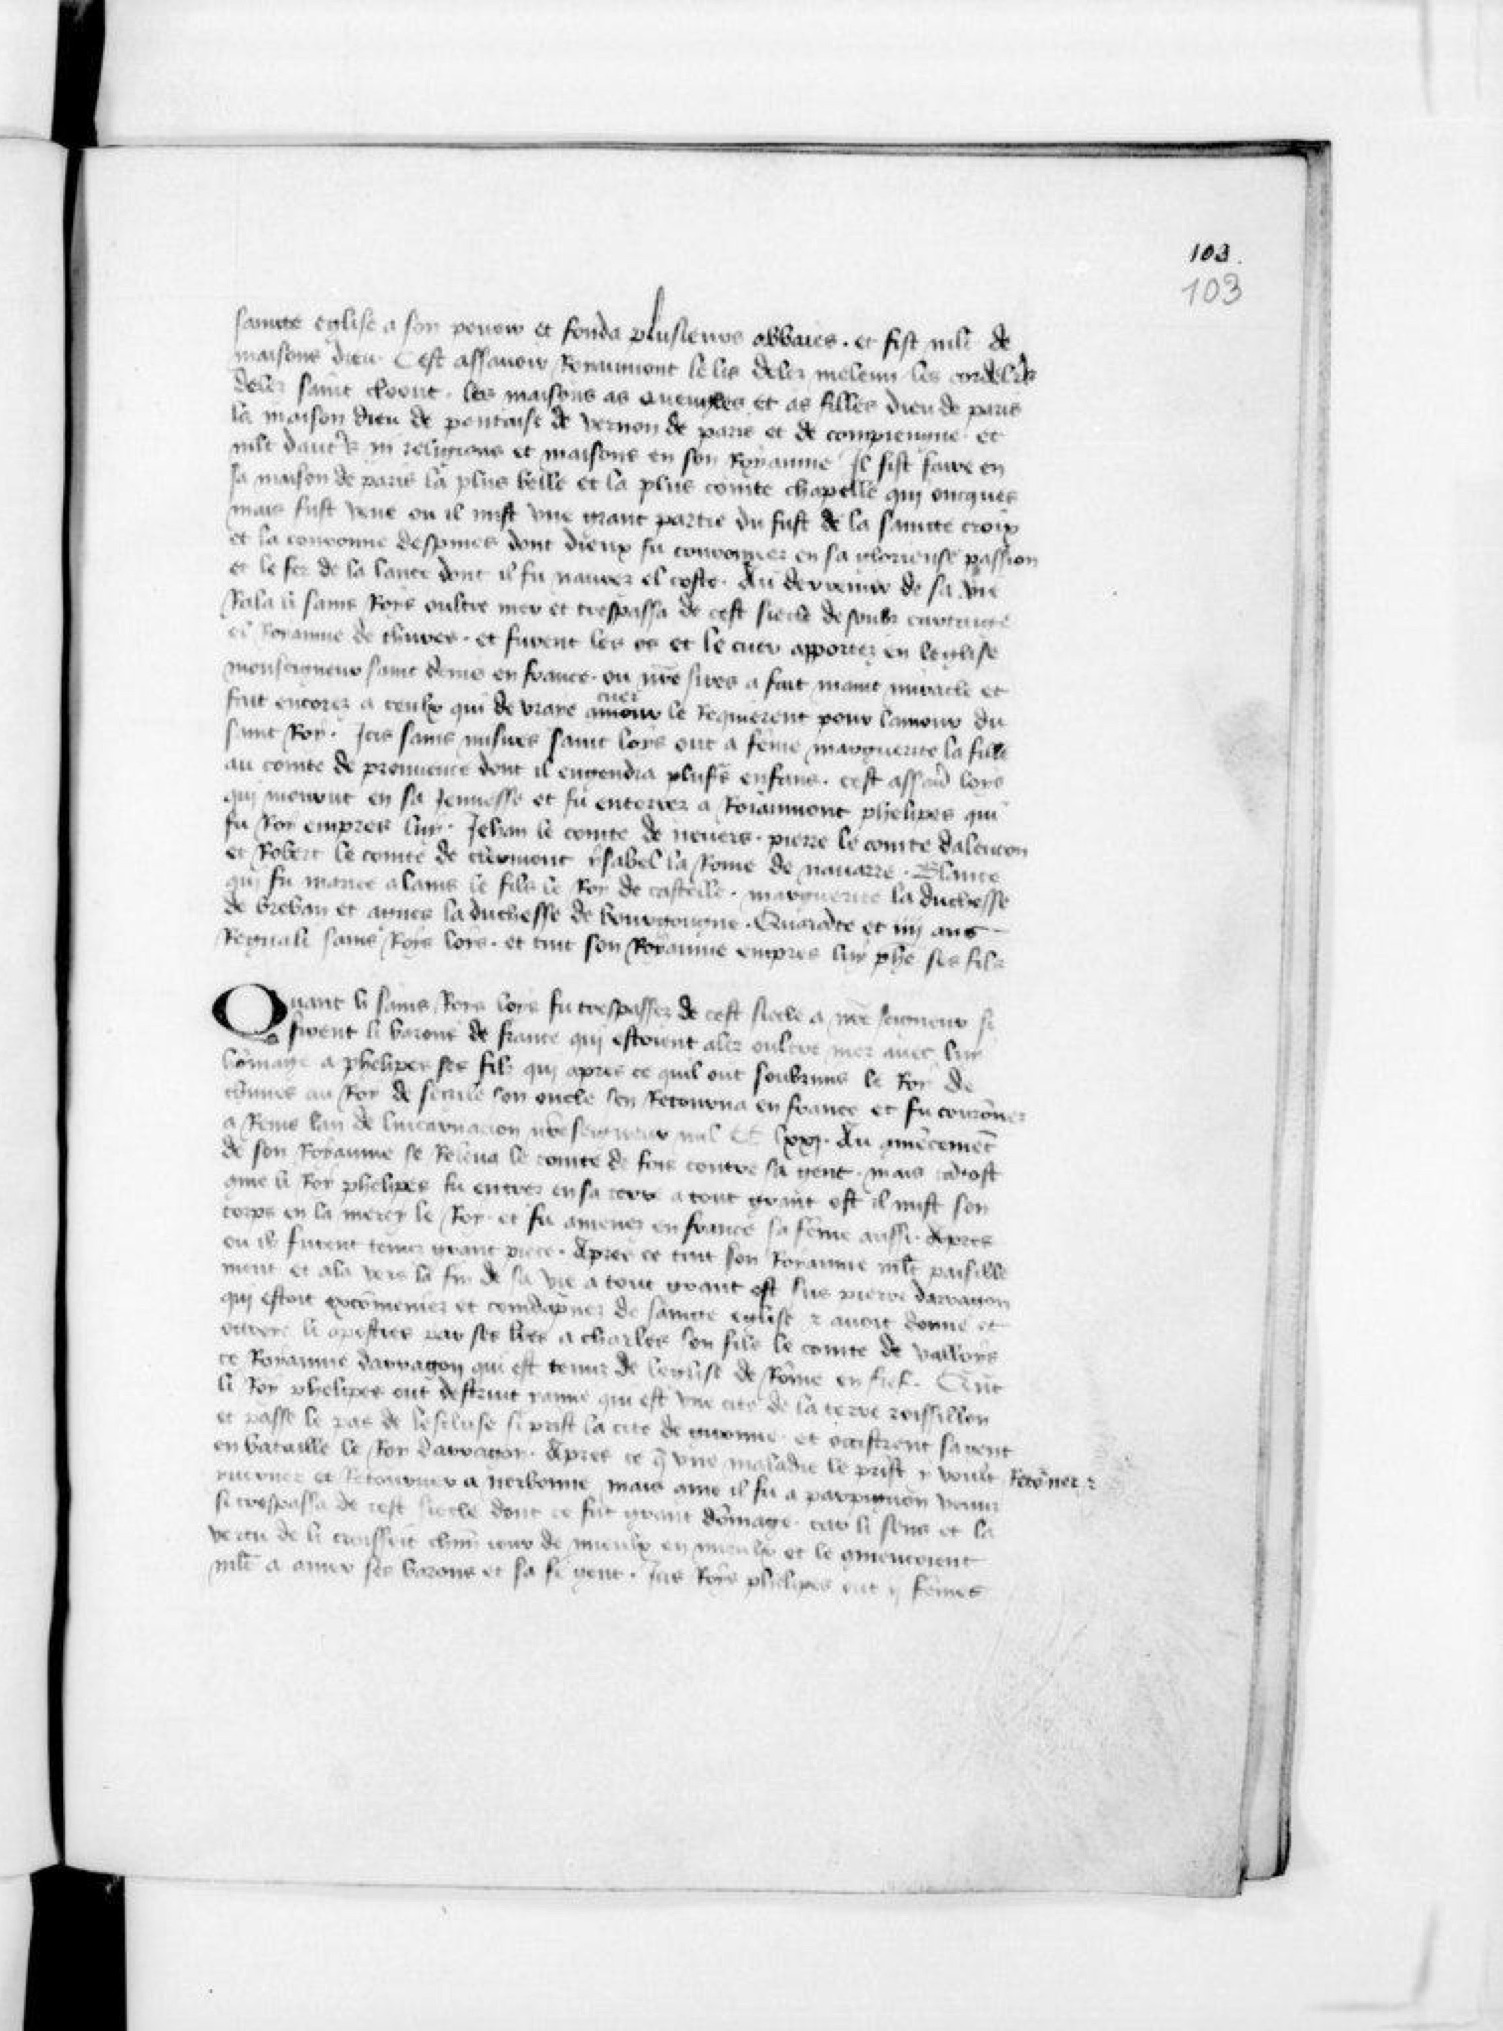 103.
103
saincte eglise a son povoir et fonda plusieurs abbaies . et fist mlt de
maisons dieu . Cest assavoir Royaumont le lis deles meleun les cordelrs
deles saint cloout . les maisons as aveugles et as filles dieu de paris
la maison dieu de pontaise de vernon de paris et de compiengne . et
mlt dautrs religions et maisons en son Royaume Il fist faire en
sa maison de paris la plus belle et la plus cointe chapelle qui oncques
mais fust veue ou il mist une grant partie du fust de la saincte croix
et la couronne despines dont dieux fu couronnez en sa glorieuse passion
et le fer de la lance dont il fu navrez el coste . Au derrenier de sa vie
Rala li sains Roys oultre mer et trespassa de cest siecle desoubz cartaige
el Royaume de thunes . et furent les os et le cuer apportez en leglise
monseigneur saint denis en france . ou nre sires a fait maint miracle et
fait encores a ceulx qui de vraye amour cuer le Requierent pour lamour du
saint Roy . Icis sains misires saint loys out a feme marguerite la fille
au comte de prouvence dont il engendra plusrs enfans . cest assavr loys
qui mourut en sa Jeunesse et fu enterrez a Roiaumont phelipes qui
fu Roy empres luy . Jehan le comte de nevers . pierre le comte dalencon
et Robert le comte de clermont ysabel la Roine de navarre . Blance
qui fu mariee alains le fils le Roy de castelle . marguerite la duchesse
de breban et agnes la duchesse de bourgongne . Quarāte et iiii ans
Regnali sains Roys loys . et tint son Royaume empres luy phe ses filz
Quant li sains Roys loys fu trespassez de cest siecle a nre seigneur si
firent li barons de france qui estoient alez oultre mer avec luy
hōmage a phelipes ses filz qui apres ce quil out soubzmis le Roy de
thunes au Roy de secile son oncle sen Retourna en france et fu courōnez
a Reins lan de lincarnacion nre seigneur mil CC lxxj . Au cmēcemēt
de son Royaume se Releva le comte de fois contre sa gent . mais tātost
que li Roy phelipes fu entrez en sa terre a tout grant ost il mist son
corps en la mercy le Roy . et fu amenez en france sa feme aussi . Apres
ou ilz furent tenuz grant piece . Apres ce tint son Royaume mlt paisille
ment et ala vers la fin de sa vie a tout grant ost sus pierre darragon
qui estoit excōmeniez et condāpnez de saincte eglise et avoit donne et
ottroye li apostres par ses lres a charles son filz le comte de vallois
ce Royaume darragon qui est tenuz de leglise de Rōme en fief . Qūt
li Roy phelipes out destruit ianne qui est une cite de la terre roissillon
et passe le pas de lescluse si prist la cite de gironne et occistrent sa gent
en bataille le Roy darragon . Apres ce q une maladie le prist y voult Retōner et
yverner et Retourner a nerbonne mais cme il fu a parpignon venuz
si trespassa de cest siecle dont ce fut grant dōmage . car li sens et la
vertu de li croissoit chm iour de mieulx en mieulx et le cmencoient
mlt a amer ses barons et sa gent . Icis Roys phelipes out ij femes